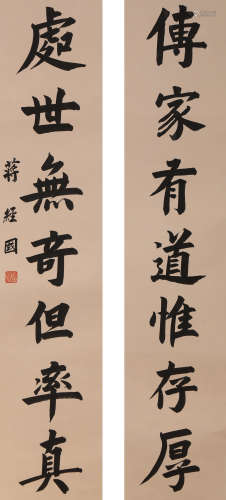 傳家有道惟存厚
處世無奇但率真
蔣經國